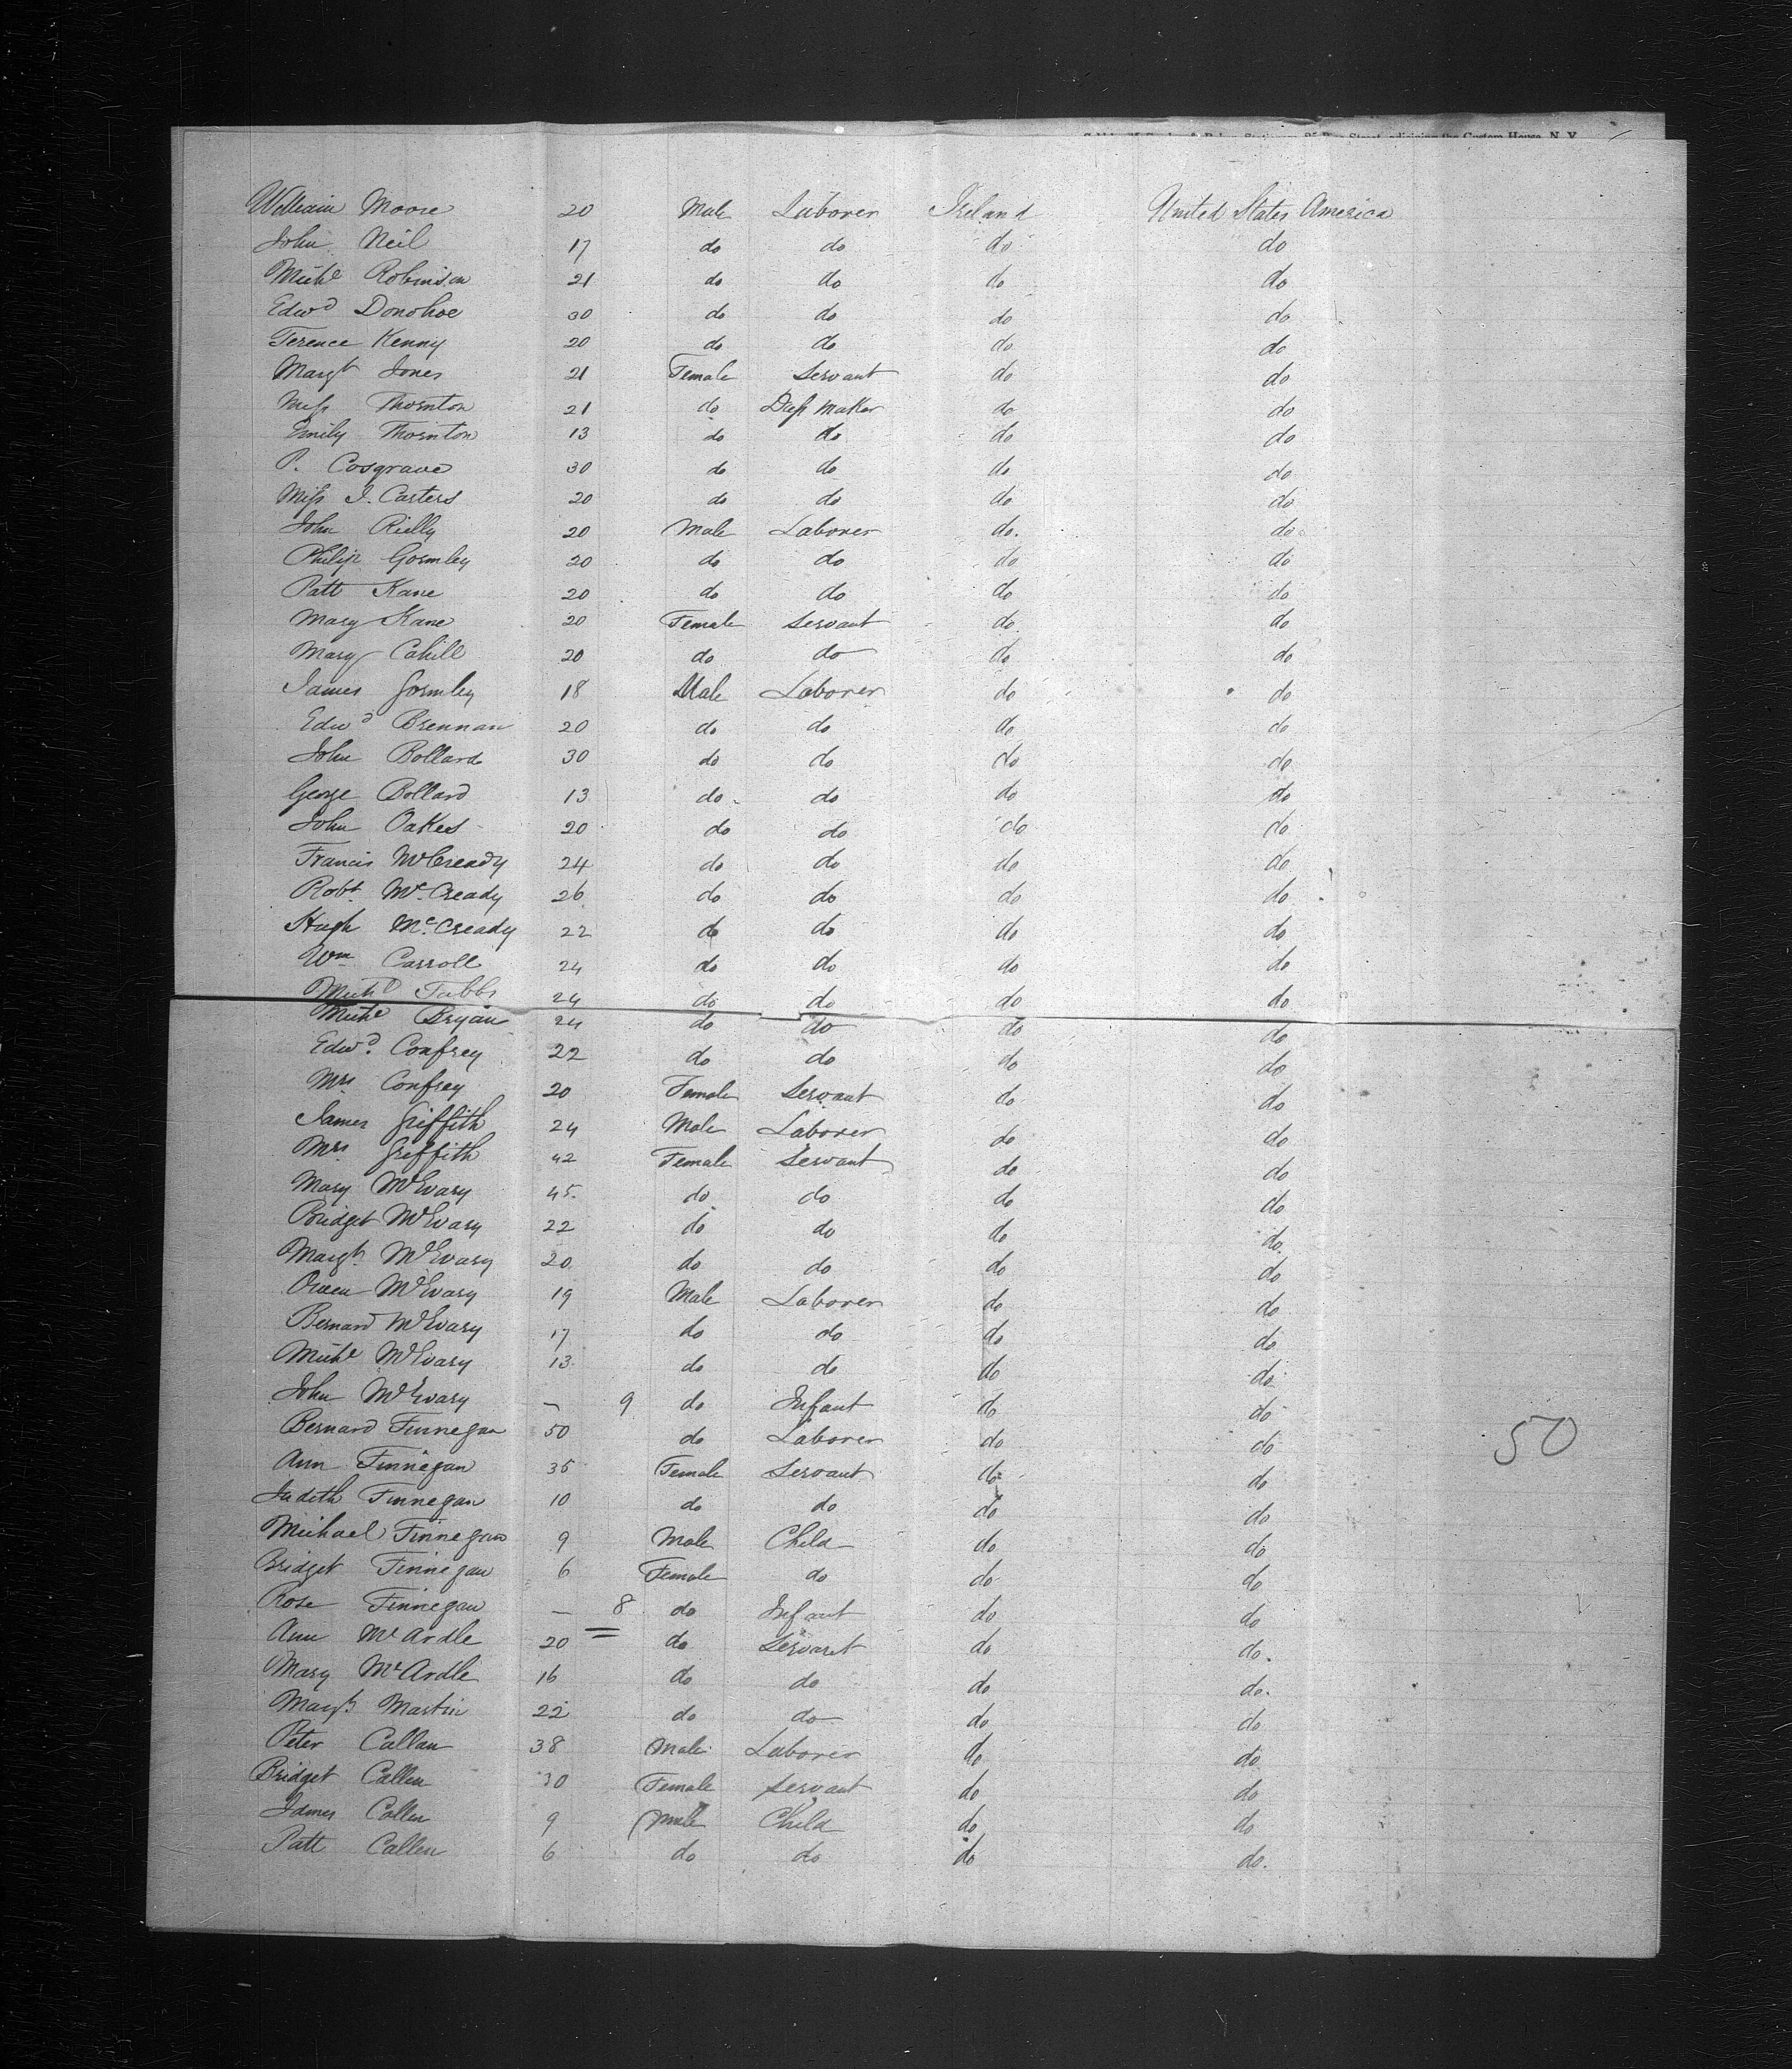 William Moore 20 Male Laborer Ireland United States America
John Neil 17 do do do do
Michl Robinson 21 do do do do
Edwd Donohoe 30 do do do do
Terence Kenny 20 do do do do
Margt Jones 21 Female Servant do do
Miss Thornton 21 do Dress Maker do do
Emily Thornton 13 do do do do
P. Cosgrave 30 do do do do
Miss J. Carters 20 do do do do
John Rielly 20 Male Laborer do. do
Philip Gormley 20 do do do do
Patt Kane 20 do do do do
Mary Kane 20 Female Servant do. do
Mary Cahill 20 do do do do
James Gormley 18 Male Laborer do do
Edwd Brennan 20 do do do do
John Bollard 30 do do do do
George Bollard 13 do do do do
John Oakes 20 do do do do
Francis McCready 24 do do do do
Robt. Mc.Cready 26 do do do do.
Hugh Mc.Cready 22 do do do do
Wm Carroll 24 do do do do
Michl Tubbs 24 do do do do
Michl Bryan 24 do do do do
Edwd. Confrey 22 do do do do
Mrs Confrey 20 Female Servant do do
James Griffith 24 Male Laborer do do
Mrs Griffith 42 Female Servant do do
Mary McEvary 45 do do do do
Bridget McEvary 22 do do do do
Margt. McEvary 20 do do do do
Owen McEvary 19 Male Laborer do do
Bernard McEvary 17 do do do do
Michl McEvary 13 do do do do
John McEvary — 9 do Infant do do
Bernard Finnegan 50 do Laborer do do 50
Ann Finnegan 35 Female Servant do do
Judith Finnegan 10 do do do do
Michael Finnegan 9 Male Child do do
Bridget Finnegan 6 Female do do do
Rose Finnegan — 8 do Infant do do
Ann McArdle 20 do Servant do do.
Mary McArdle 16 do do do do.
Margt Martin 22 do do do do
Peter Callan 38 Male Laborer do do
Bridget Callen 30 Female Servant do do
James Callen 9 Male Child do do
Patt Callen 6 do do do do.